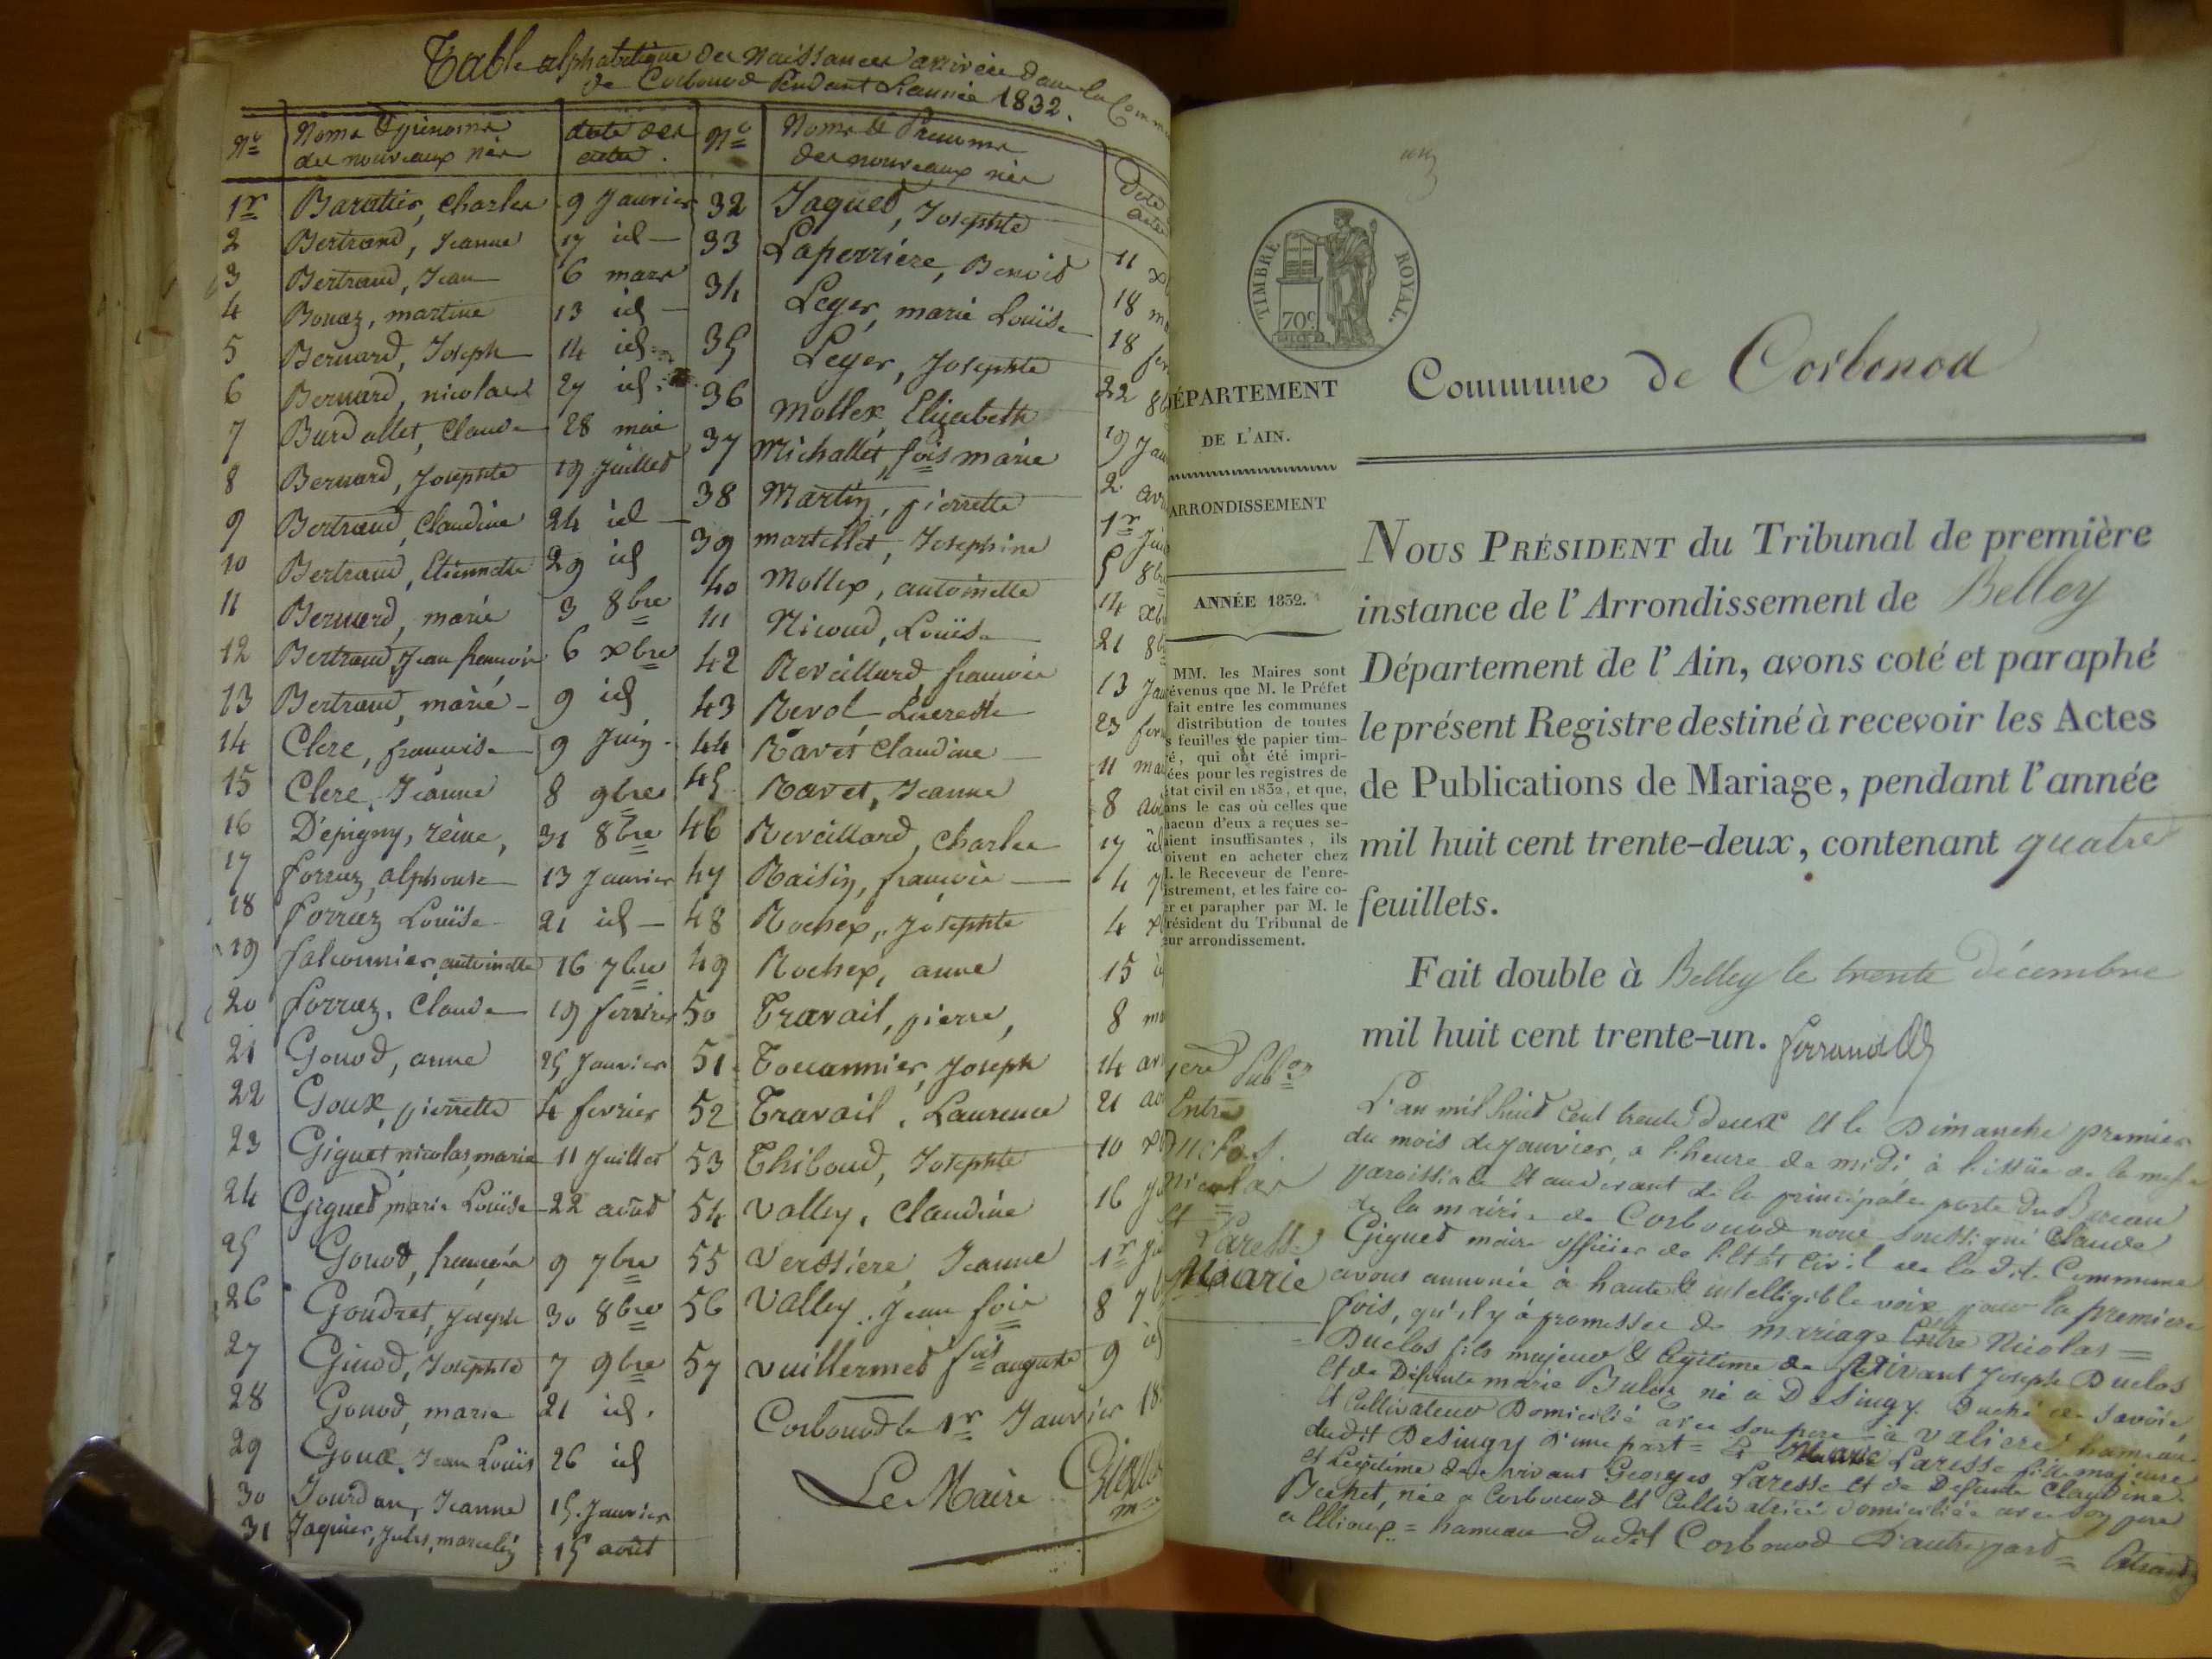 Table alphabétique des Naissances arrivées dans la Comm
de Corbonod Pendant L'année 1832.
No Noms & prénoms des nouveaux nés date des actes
1r Baratier, Charles 9 Janvier
2 Bertrand, Jeanne 17 id
3 Bertrand, Jean 6 mars
4 Bouaz, martine 13 id
5 Bernard, Joseph 14 id
6 Bernard, nicolas 27 id
7 Burdallet, Claude 28 mai
8 Bernard, Josephte 19 Juillet
9 Bertrand, Claudine 24 id
10 Bertrand, Etiennette 29 id
11 Bernard, marie 3 8bre
12 Bertrand, Jean francois 6 xbre
13 Bertrand, marie 9 id
14 Clerc, francoise 9 Juin
15 Clerc, Jeanne 8 9bre
16 D'epigny, reine, 31 8bre
17 forraz, alphonse 13 Janvier
18 forraz Louïse 21 id
19 falconnier, antoinette 16 7bre
20 forraz, Claude 19 fevrier
21 Gonod, anne 25 Janvier
22 Goux, pierrette 4 fevrier
23 Giguet, nicolas, marie 11 Juillet
24 Giguet, marie Louïse 22 août
25 Gonod, francois 9 7bre
26 Goudret, Joseph 30 8bre
27 Ginod, Josephte 7 9bre
28 Gonod, marie 21 id.
29 Goux, Jean Louis 26 id
30 Jourdan, Jeanne 15 Janvier
31 Jaquier, Jules, marcelin 15 août
No Noms & Prenoms des nouveaux nés Date acte
32 Jaquet, Josephte 11 x
33 Laperrière, Benoit 18 m
34 Leger, marie Louïse 18 fev
35 Leger, Josephte 22 8b
36 Mollex, Elizabeth 19 Jan
37 Michallet, fois marie 2 avr
38 Martin, pierrette 1r Jui
39 martellet, Josephine 5 8br
40 Mollex, antoinette 14 xb
41 Nicoud, Louïse 21 8b
42 Reveillard francois 13 Jan
43 Revol Lucresse 23 fev
44 Ravet Claudine 11 mar
45 Ravet, Jeanne 8 av
46 Reveillard, Charles 17 id
47 Raisin, francois 4 7
48 Rochex, Josephte 4 x
49 Rochex, anne 15
50 Travail, pierre, 8 m
51 Toccannier, Joseph 14 av
52 Travail, Laurence 21 ao
53 Thiboud, Josephte 10 xb
54 Valley, Claudine 16 J
55 Verssière, Jeanne 1r Ju
56 Valley, Jean fois 8 7b
57 Vuillermet fois auguste 9 id
Corbonod le 1r Janvier 18
Le Maire
TIMBRE ROYAL.
70c
Commune de Corbonod
DÉPARTEMENT
DE L'AIN.
ARRONDISSEMENT
ANNÉE 1832.
MM. les Maires sont
évenus que M. le Préfet
fait entre les communes
distribution de toutes
s feuilles de papier tim-
é, qui ont été impri-
ées pour les registres de
état civil en 1832, et que,
ans le cas où celles que
hacun d'eux a reçues se-
aient insuffisantes, ils
oivent en acheter chez
I. le Receveur de l'enre-
istrement, et les faire co-
er et parapher par M. le
résident du Tribunal de
eur arrondissement.
NOUS PRÉSIDENT du Tribunal de première
instance de l'Arrondissement de Belley
Département de l'Ain, avons coté et paraphé
le présent Registre destiné à recevoir les Actes
de Publications de Mariage, pendant l'année
mil huit cent trente-deux, contenant quatre
feuillets.
Fait double à Belley le trente décembre
mil huit cent trente-un.
Entre
Duclos
nicolas
et
Laresse
Marie
L'an mil huit Cent trente deux & le Dimanche premier
du mois de Janvier, a l'heure de midi à l'issüe de la messe
paroissiale et audevant de la principale porte du Bureau
de la mairie de Corbonod nous soussigné Claude
Giguet maire officier de l'Etat civil de la dite Commune
avons annoncé à haute & intelligible voix pour la premiere
fois, qu'il y a promesse de mariage Entre Nicolas
Duclos fils majeur & legitime de vivant Joseph Duclos
et de Defunte marie né a Desingy Duché de Savoie
et Cultivateur Domicilié avec son pere à hameau
dudit Desingy d'une part = Et Marie Laresse fille majeure
et Legitime de vivant Georges Laresse et de Defunte Claudine
née a Corbonod et Cultivatrice domiciliée avec son pere
a = hameau Dudit Corbonod D'autre part =